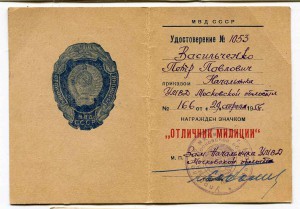 МВД
СССР
МВД СССР
Удостоверение № 1053
Васильченко
Петр Павлович
приказом Начальника
УМВД Московской области
№ 166 от
НАГРАЖДЕН ЗНАЧКОМ
"ОТЛИЧНИК МИЛИЦИИ"
М.П. Зам. Начальника УМВД
Московской области